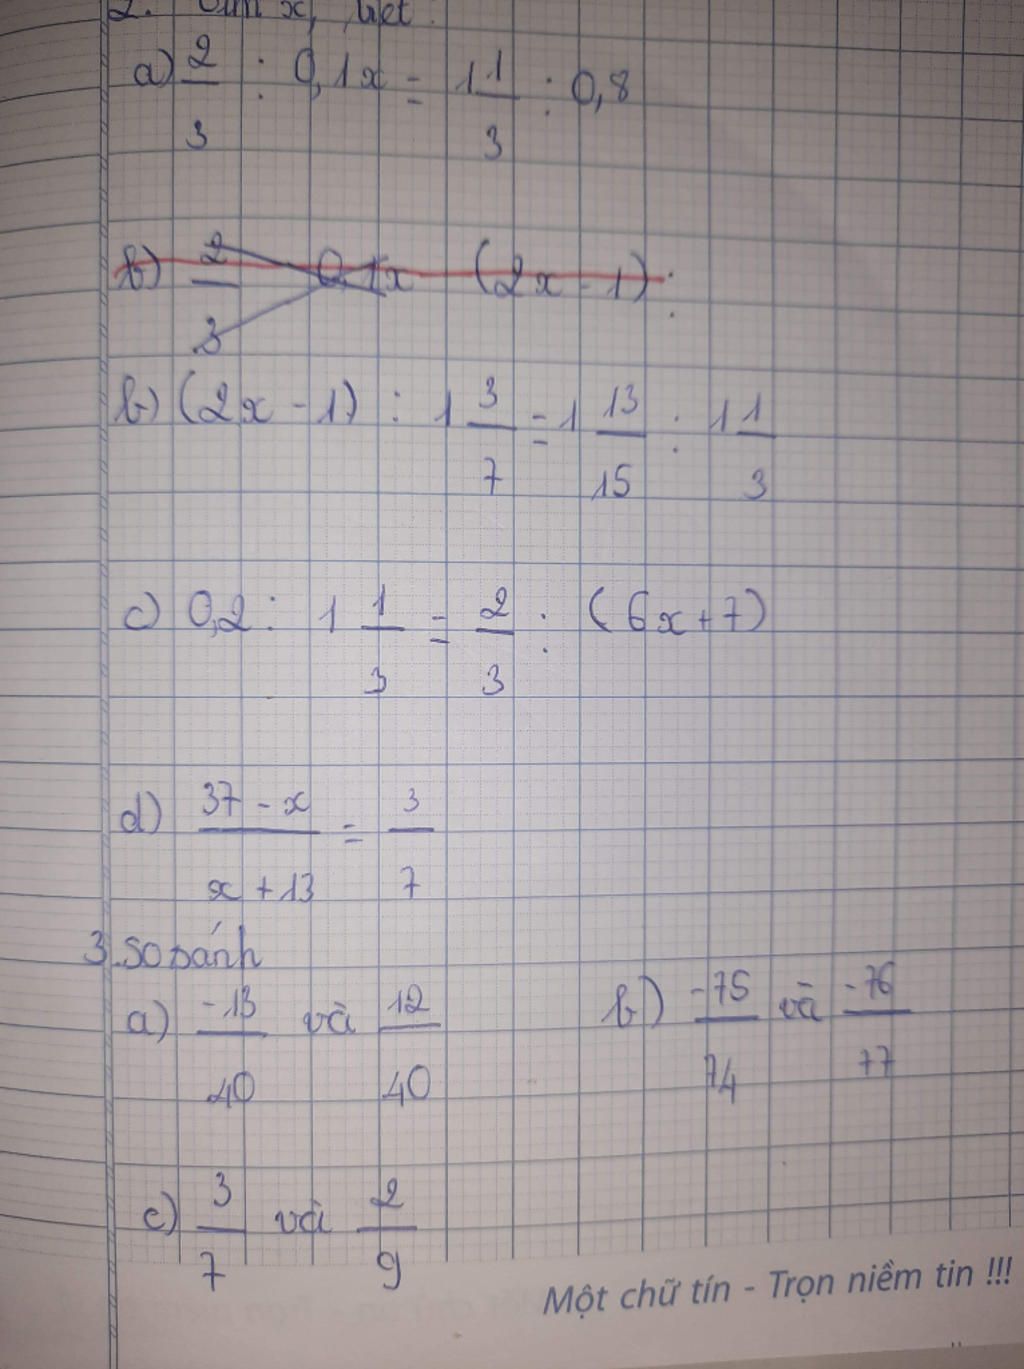 2. Tìm x, biết:
a) 2/3 : 0,1x = 1 1/3 : 0,8
b) 2/3 0,1x (2x - 1) :
b) (2x - 1) : 1 3/7 = 1 13/15 : 1 1/3
c) 0,2 : 1 1/3 = 2/3 : (6x + 7)
d) 37 - x / x + 13 = 3/7
3. So sánh
a) -13/40 và 12/40 b) -75/74 và -76/77
c) 3/7 và 2/9
Một chữ tín - Trọn niềm tin !!!